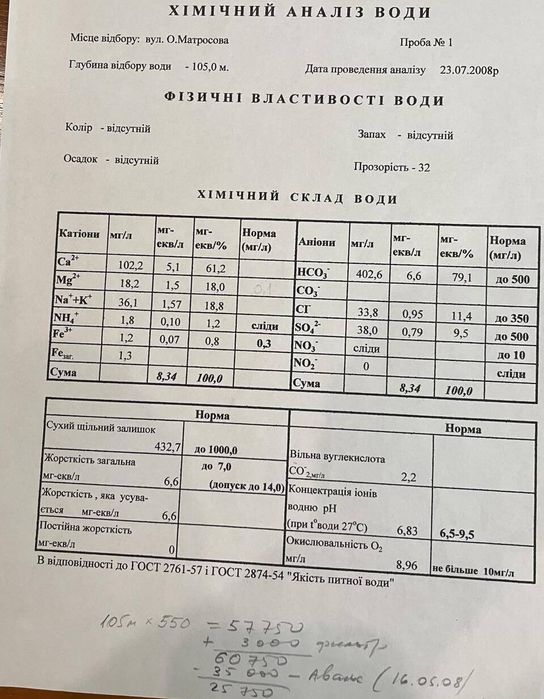 ХІМІЧНИЙ АНАЛІЗ ВОДИ
Місце відбору: вул. О.Матросова Проба № 1
Глубина відбору води - 105,0 м. Дата проведення аналізу 23.07.2008р
ФІЗИЧНІ ВЛАСТИВОСТІ ВОДИ
Колір - відсутній Запах - відсутній
Осадок - відсутній Прозорість - 32
ХІМІЧНИЙ СКЛАД ВОДИ
Катіони мг/л мг-екв/л мг-екв/% Норма (мг/л) Аніони мг/л мг-екв/л мг-екв/% Норма (мг/л)
Ca²⁺ 102,2 5,1 61,2 HCO₃⁻ 402,6 6,6 79,1 до 500
Mg²⁺ 18,2 1,5 18,0 0,1 CO₃⁻
Na⁺+K⁺ 36,1 1,57 18,8 Cl⁻ 33,8 0,95 11,4 до 350
NH₄⁺ 1,8 0,10 1,2 сліди SO₄²⁻ 38,0 0,79 9,5 до 500
Fe³⁺ 1,2 0,07 0,8 0,3 NO₃⁻ сліди до 10
Feзаг. 1,3 NO₂⁻ 0 сліди
Сума 8,34 100,0 Сума 8,34 100,0
Норма Норма
Сухий щільний залишок
432,7 до 1000,0
Жорсткість загальна до 7,0
мг-екв/л 6,6 (допуск до 14,0)
Жорсткість , яка усува-
ється мг-екв/л 6,6
Постійна жорсткість
мг-екв/л 0
Вільна вуглекислота
CO⁻₂,мг/л 2,2
Концентрація іонів
водню pH
(при t°води 27°С) 6,83 6,5-9,5
Окислювальність O₂
мг/л 8,96 не більше 10мг/л
В відповідності до ГОСТ 2761-57 і ГОСТ 2874-54 "Якість питної води"
105м × 550 = 57 750
+ 3000 фильтр
60 750
- 35 000 - Аванс (16.05.08/
25 750